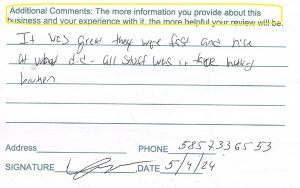 Additional Comments: The more information you provide about this
business and your experience with it, the more helpful your review will be.
It was great they were fast and nice
at what did - all stuff was in tact nothing
broken
Address
PHONE 5857336553
SIGNATURE DATE 5/4/24